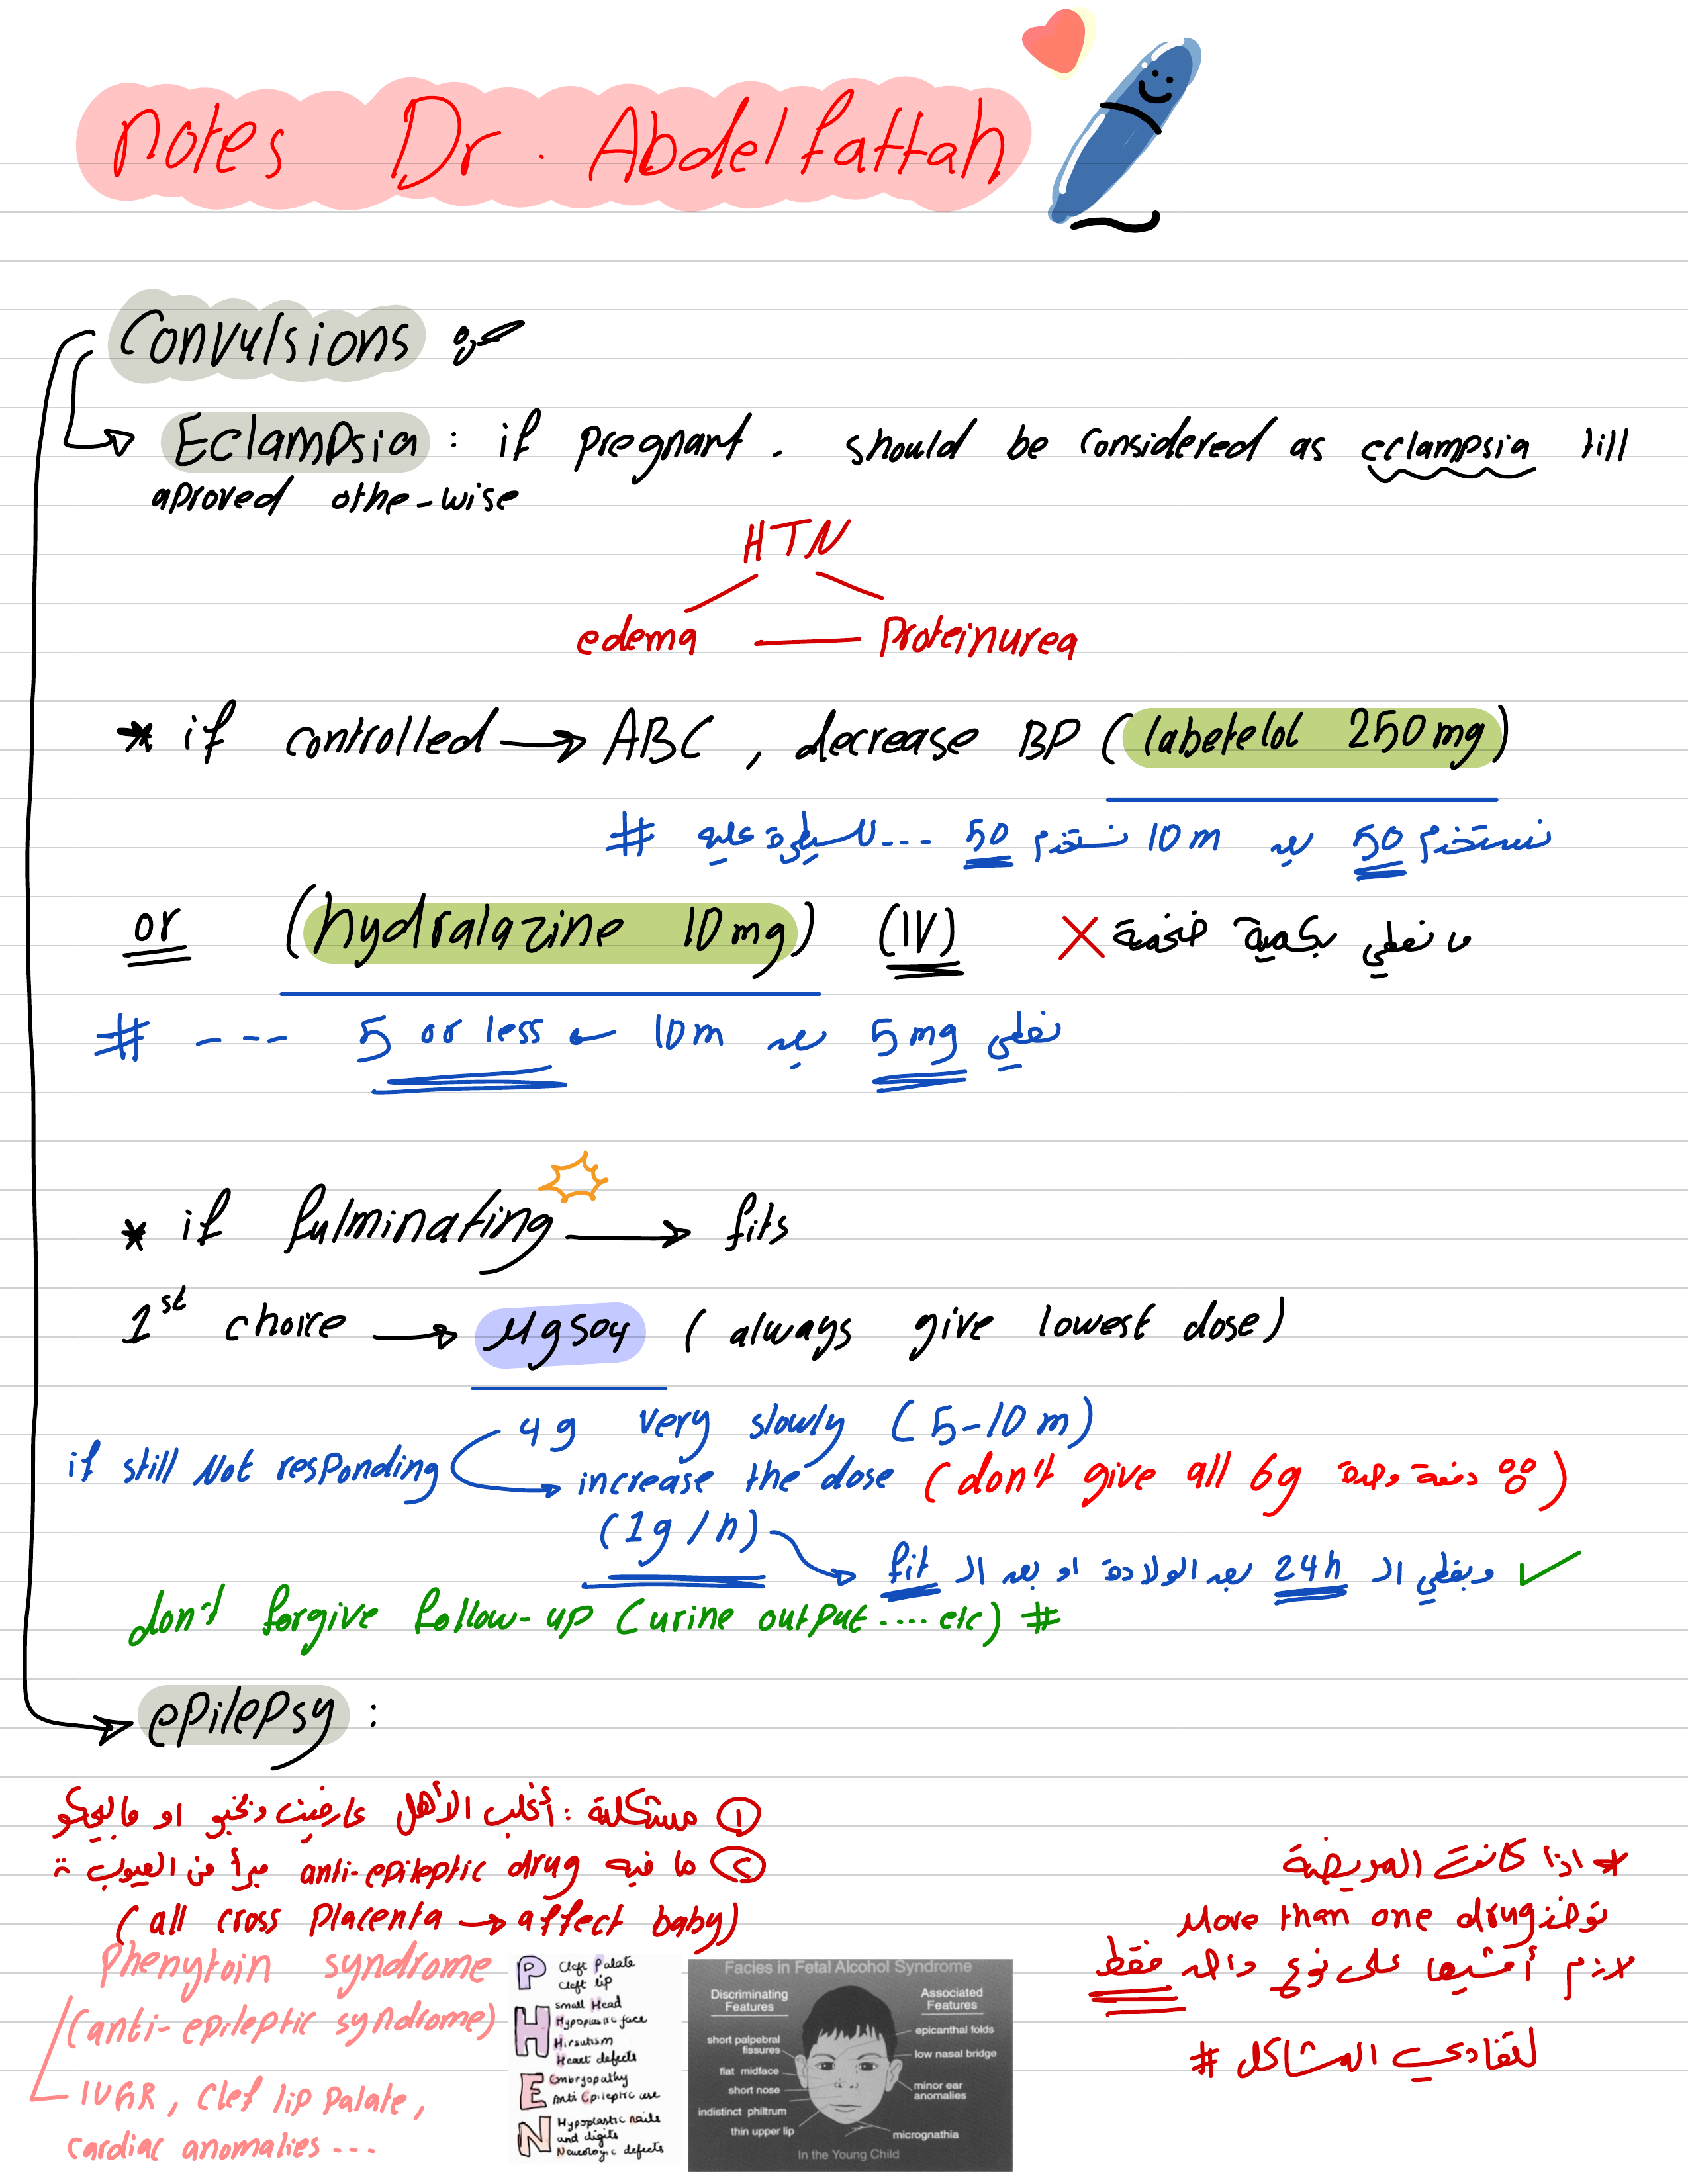 notes Dr. Abdelfattah
Convulsions
Eclampsia : if pregnant. should be considered as eclampsia till
aproved othe-wise
HTN
edema — Proteinurea
* if controlled → ABC , decrease BP (labetelol 250mg)
نستخدم 50 بعد 10m نستخدم 50 ---للسيطرة عليه #
or (hydralazine 10mg) (IV) ما نعطي بكمية ضخمة X
نعطي 5mg بعد 10m ← 5 or less ---- #
* if fulminating → fits
1st choice → Mgso4 ( always give lowest dose)
4g very slowly (5-10 m)
if still Not responding → increase the dose (don't give all 6g دفعة وحدة)
(1g/h) → وبعطي ال 24h بعد الولادة او بعد ال fit ✓
don't forgive follow-up (urine output....etc) #
epilepsy :
① مشكلة : أغلب الأهل عارفين وبخبو او ما بيحكو
② ما فيه anti-epileptic drug مبرأ من العيوب
(all cross Placenta → affect baby)
* اذا كانت المريضة
توخذ More than one drug
لازم أمشيها على نوع واحد فقط
لتفادي المشاكل #
Phenytoin syndrome
(anti-epileptic syndrome)
IUGR, Clef lip palate,
cardiac anomalies ---
P Cleft Palate
Cleft lip
H small Head
Hypoplastic face
Hirsutism
Heart defects
E Embryopathy
Anti Epileptic use
N Hypoplastic nails
and digits
Neurologic defects
Facies in Fetal Alcohol Syndrome
Discriminating
Features
short palpebral
fissures
flat midface
short nose
indistinct philtrum
thin upper lip
Associated
Features
epicanthal folds
low nasal bridge
minor ear
anomalies
micrognathia
In the Young Child